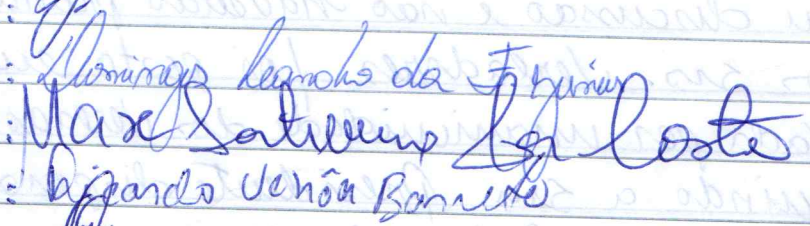 : Domingo Leandro da
: Max Saturnino da Costa
: Ricardo Uchôa Barreto